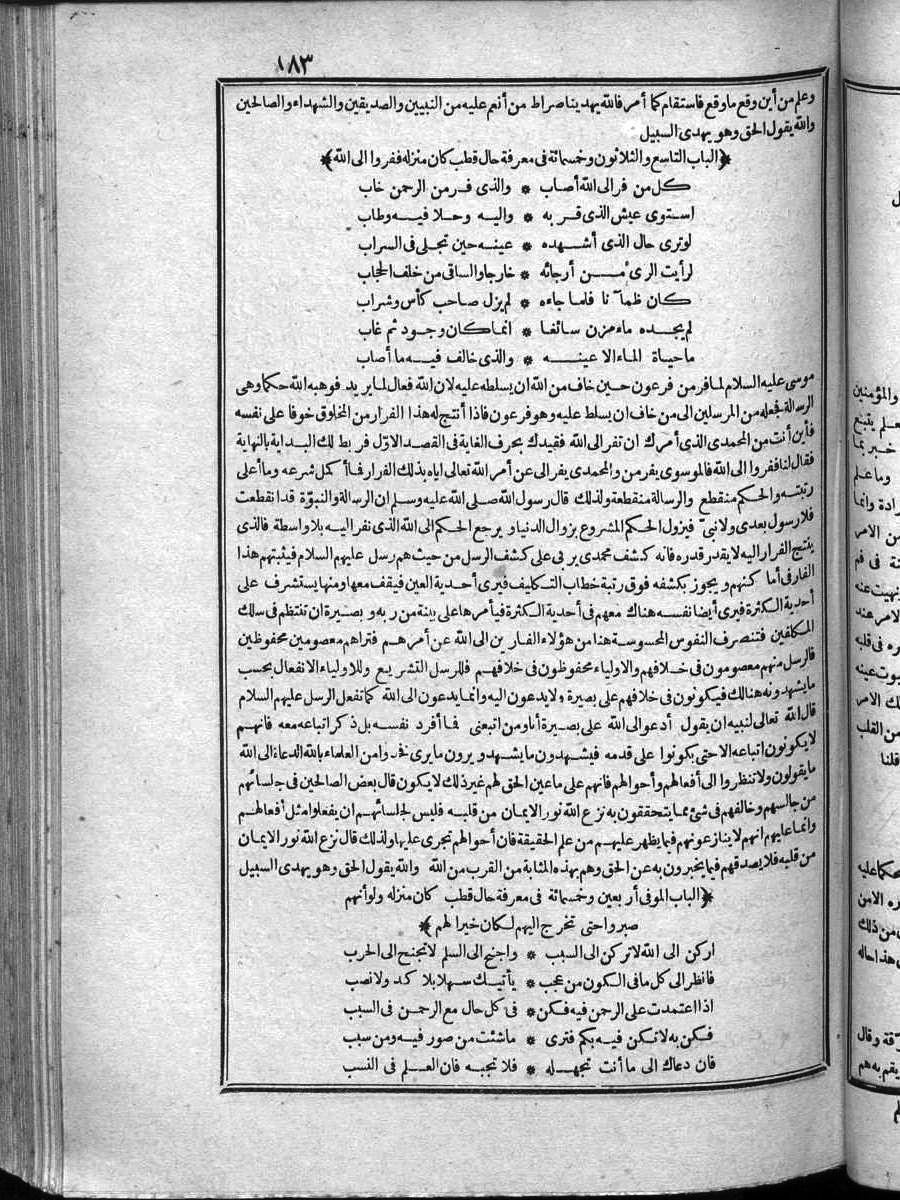 ١٨٣
وعلم من أين وقع ما وقع فاستقام كما أمر فالله يهدينا صراط من أنعم عليه من النبيين والصديقين والشهداء والصالحين
والله يقول الحق وهو يهدى السبيل
﴿الباب التاسع والثلاثون وخمسمائة فى معرفة حال قطب كان منزله ففروا الى الله﴾
كل من فر الى الله أصاب * والذى فر من الرحمن خاب
استوى عيش الذى قر به * واليه وحلا فيه وطاب
لو ترى حال الذى أشهده * عينه حين تجلى فى السراب
لرأيت الرىّ من أرجائه * خارجا والساقى من خلف الحجاب
كان ظمآنا فلما جاءه * لم يزل صاحب كأس وشراب
لم يجده ماء مزن سائغا * انما كان وجود ثم غاب
ما حياة الماء الا عينه * والذى خالف فيه ما أصاب
موسى عليه السلام لما فر من فرعون حين خاف من الله ان يسلطه عليه لان الله فعال لما يريد فوهبه الله حكما وهى
الرسالة فجعله من المرسلين الى من خاف ان يسلط عليه وهو فرعون فاذا أنتج له هذا الفرار من المخلوق خوفا على نفسه
فأين أنت من المحمدى الذى أمرك ان تفر الى الله فقيدك بحرف الغاية فى القصد الاوّل فربط لك البداية بالنهاية
فقال لنا ففروا الى الله فالموسوى يفر من والمحمدى يفر الى عن أمر الله تعالى اياه بذلك الفرار فما أكمل شرعه وما أعلى
رتبته والحكم منقطع والرسالة منقطعة ولذلك قال رسول الله صلى الله عليه وسلم ان الرسالة والنبوّة قد انقطعت
فلا رسول بعدى ولا نبىّ فيزول الحكم المشروع بزوال الدنيا ويرجع الحكم الى الله الذى نفر اليه بلا واسطة فالذى
ينتج الفرار اليه لا يقدر قدره فانه كشف محمدى يربى على كشف الرسل من حيث هم رسل عليهم السلام فيثبتهم هذا
الفار فى أماكنهم ويجوز بكشفه فوق رتبة خطاب التكليف فيرى أحدية العين فيقف معها ومنها يستشرف على
أحدية الكثرة فيرى أيضا نفسه هناك معهم فى أحدية الكثرة فيأمرها على بينة من ربه وبصيرة ان تنتظم فى سلك
المكلفين فتنصرف النفوس المحسوسة هنا من هؤلاء الفارين الى الله عن أمرهم فتراهم معصومين محفوظين
فالرسل منهم معصومون فى خلافهم والاولياء محفوظون فى خلافهم فللرسل التشريع وللاولياء الانفعال بحسب
ما يشهدونه هنالك فيكونون فى خلافهم على بصيرة ولا يدعون اليه وانما يدعون الى الله كما تفعل الرسل عليهم السلام
قال الله تعالى لنبيه ان يقول أدعو الى الله على بصيرة أنا ومن اتبعنى فما أفرد نفسه بل ذكر اتباعه معه فانهم
لا يكونون اتباعه الا حتى يكونوا على قدمه فيشهدون ما يشهد ويرون ما يرى فخذوا من العلماء بالله الدعاء الى الله
ما يقولون ولا تنظروا الى أفعالهم وأحوالهم فانهم على ما عين الحق لهم غير ذلك لا يكون قال بعض الصالحين فى جلسائهم
من جالسهم وخالفهم فى شئ مما يتحققون به نزع الله نور الايمان من قلبه فليس لجلسائهم ان يفعلوا مثل أفعالهم
وانما عليهم انهم لا ينازعونهم فيما يظهر عليهم من علم الحقيقة فان أحوالهم تجرى عليها ولذلك قال نزع الله نور الايمان
من قلبه فلا يصدقهم فيما يخبرون به عن الحق وهم بهذه المثابة من القرب من الله والله يقول الحق وهو يهدى السبيل
﴿الباب الموفى أربعين وخمسمائة فى معرفة حال قطب كان منزله ولو أنهم
صبروا حتى تخرج اليهم لكان خيرا لهم﴾
اركن الى الله لا تركن الى السبب * واجنح الى السلم لا تجنح الى الحرب
فانظر الى كل ما فى الكون من عجب * يأتيك سهلا بلا كد ولا نصب
اذا اعتمدت على الرحمن فيه فكن * فى كل حال مع الرحمن فى السبب
فكن به لا تكن فيه بكم فترى * ما شئت من صور فيه ومن سبب
فان دعاك الى ما أنت تجهله * فلا تجبه فان العلم فى النسب